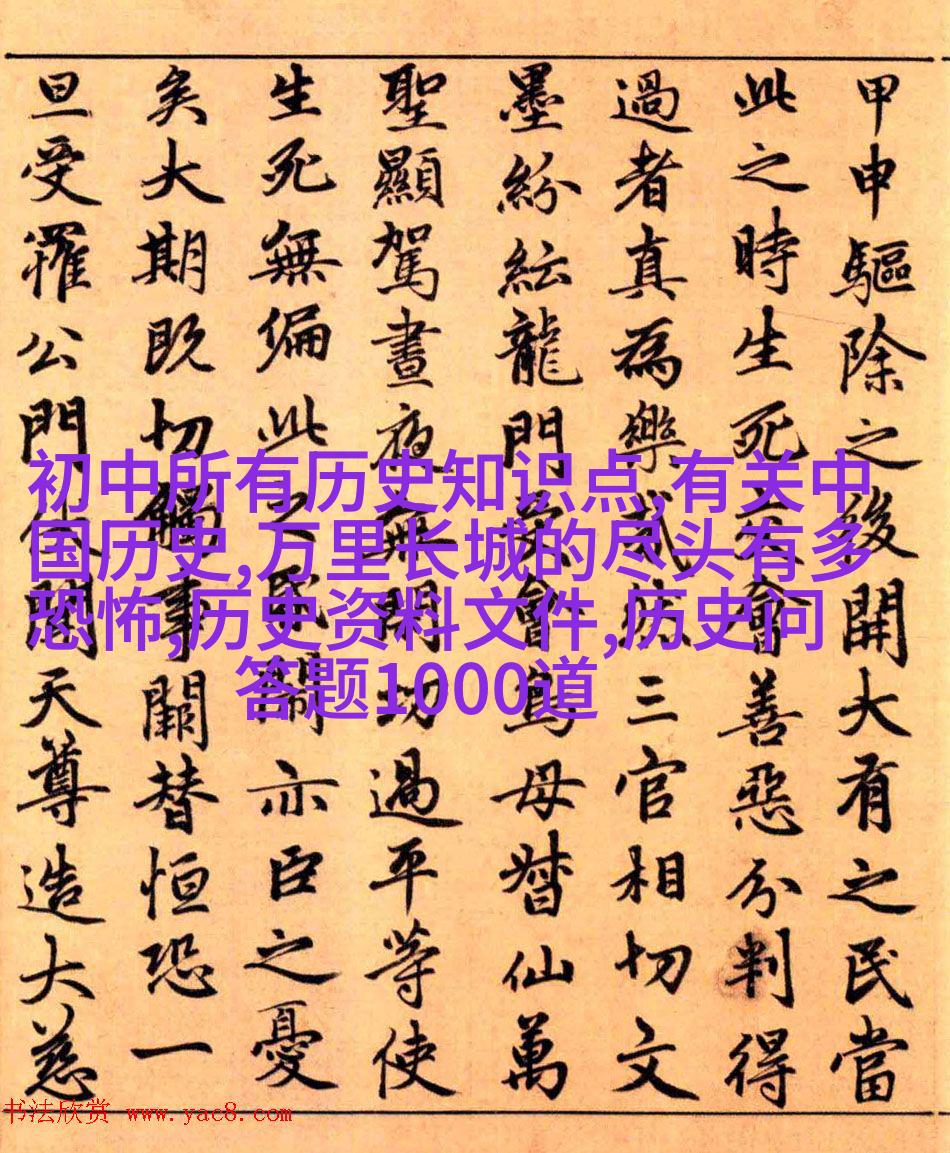 甲申驅除之後開大有之民當
此之時生死會善惡分判得
過者真為樂三官相切文
墨紛紜龍門會母督仙萬
聖顯駕晝夜無閑切過平等使
生死無偏此之亦臣之憂
矣大期既切觸事闕替恒恐一
旦受罹公門伏聞天尊造大慈
初中所有历史知识点,有关中
国历史,万里长城的尽头有多
恐怖,历史资料文件,历史问
答题1000道
书法欣赏 www.yac8.com